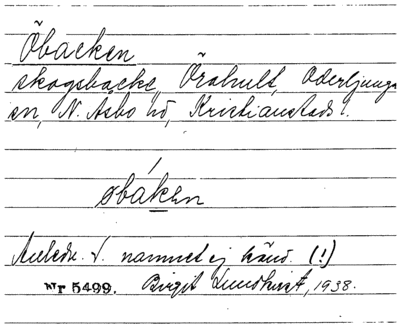 Öbacken
skogsbacke, Örahult, Oderljunga
sn, N. Åsbo hd, Kristianstads l.
øbáken
Anledn. t. namnet ej känd. (!)
Nr 5499. Birgit Lundkvist, 1938.